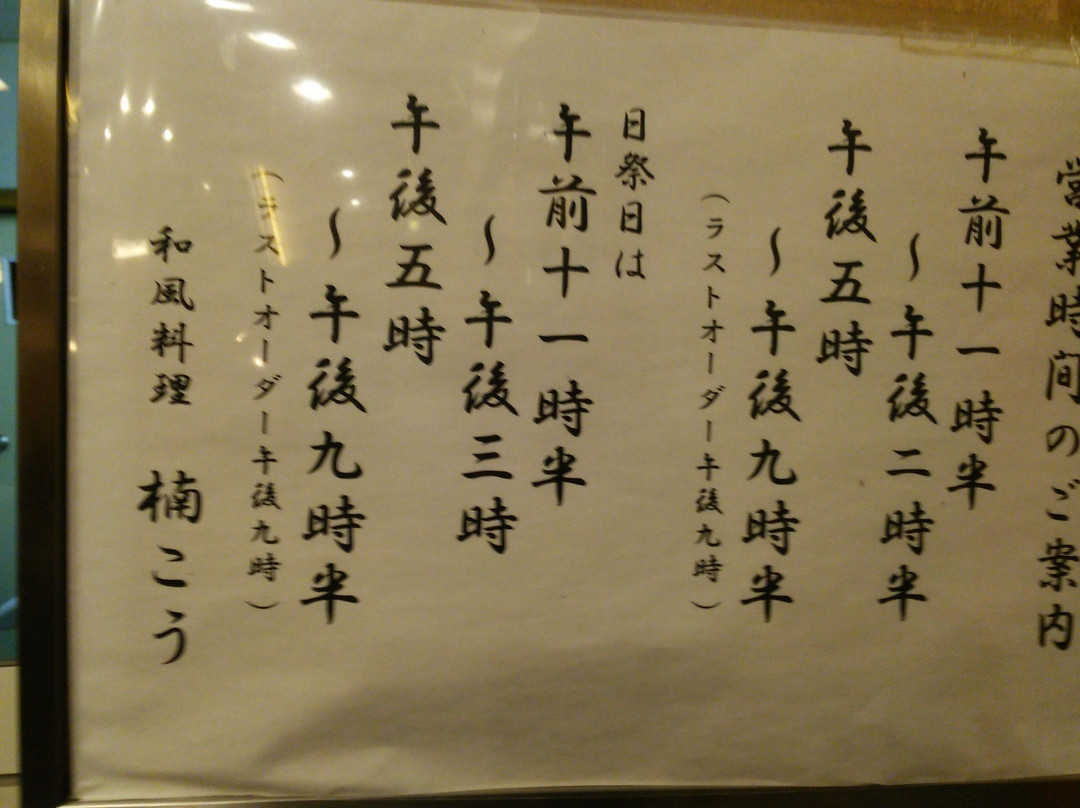 営業時間のご案内
午前十一時半
～午後二時半
午後五時
～午後九時半
（ラストオーダー午後九時）
日祭日は
午前十一時半
～午後三時
午後五時
～午後九時半
（ラストオーダー午後九時）
和風料理　楠こう